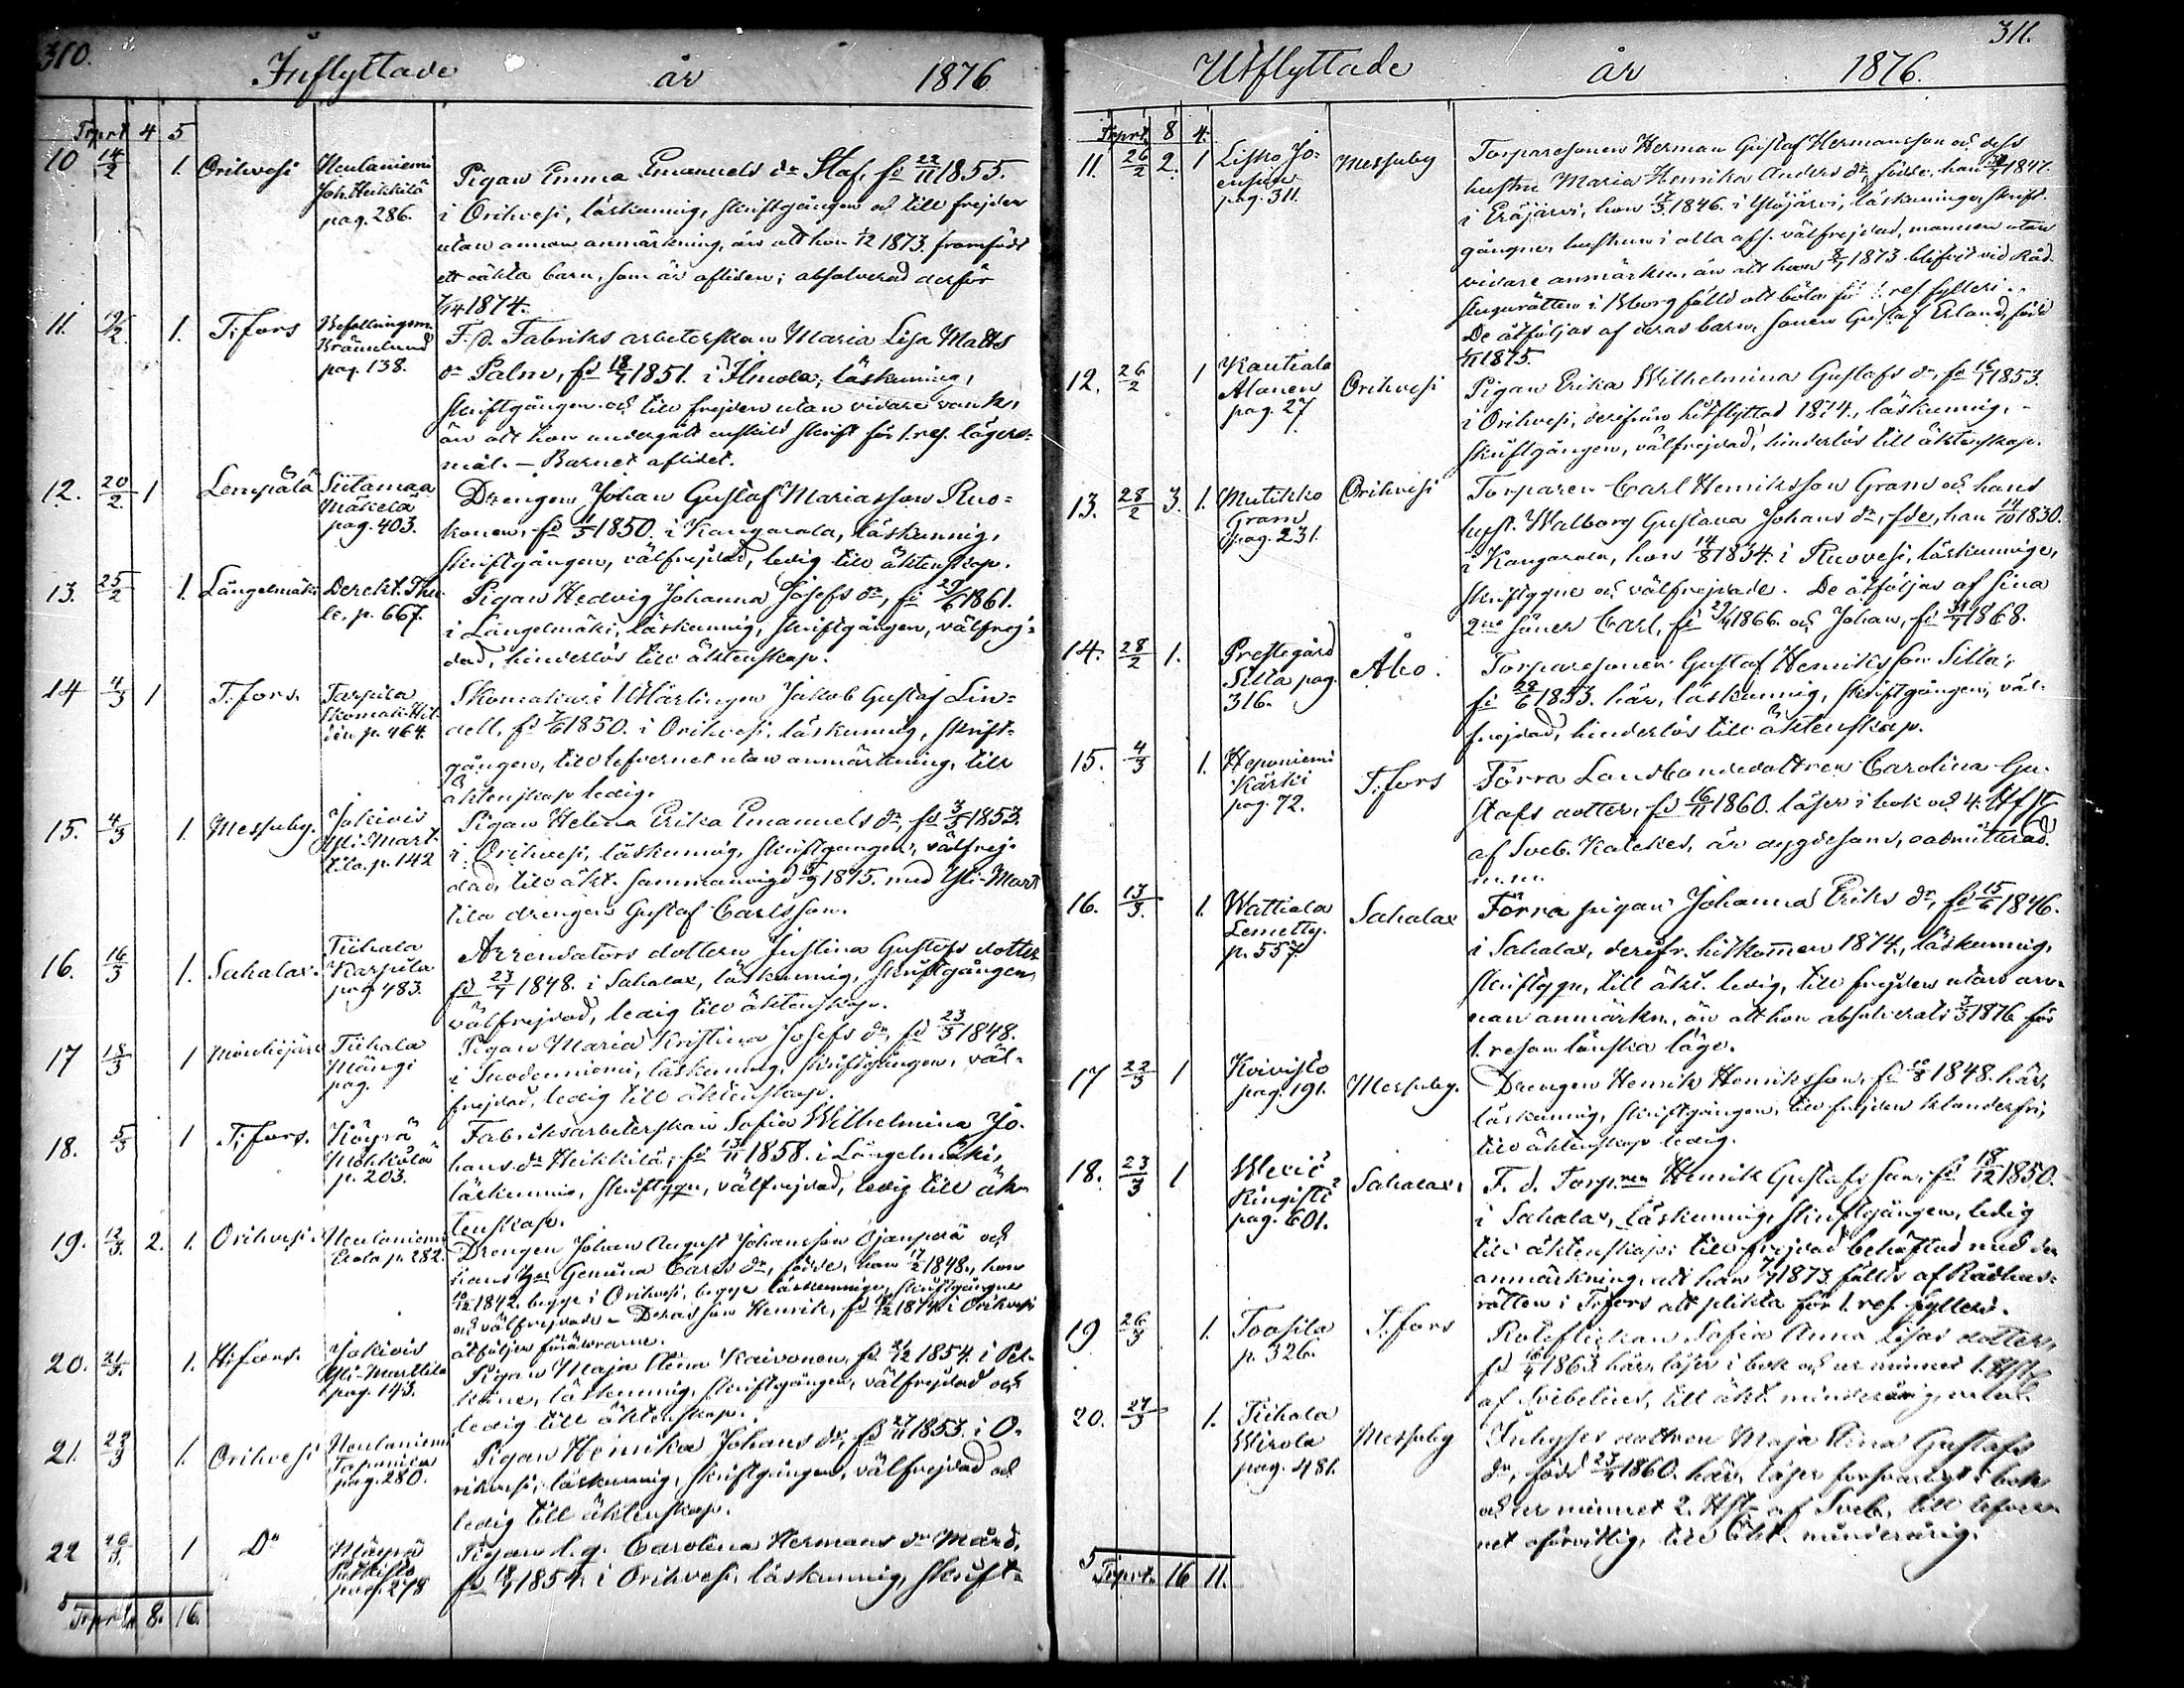 310.
Inflyttade år 1876
Trprt 4 5
10 14/2 1. Orihvesi Neulaniemi Joh. Heikkilä pag. 286.
Pigan Emma Emanuels dr Staf, fd 22/11 1855.
i Orihvesi, läskunnig, skriftgången och till frejden
utan annan anmärkning, än att hon 1/12 1873 framfödt
ett oäkta barn, som är afliden; absolverad derför
1/14 1874.
11. 1. T:fors Brännlund pag. 138.
F. d. Fabriks arbeterskan Maria Lisa Matts
dr Palm, fd 18/7 1851. i Ilmola, läskunnig,
skriftgången och till frejden utan vidare
än att hon undergått enskild skrift för 1. res. lägers-
mål. – Barnet aflidet.
12. 20/2 1 Lempälä Siitamaa Mäkelä pag. 403.
Drengen Johan Gustaf Mariasson Ruo-
konen, fd 11/5 1850. i Kangasala, läskunnig,
skriftgången, välfrejdad, ledig till äktenskap.
13. 25/2 1. Längelmäki p. 667.
Pigan Hedvig Johanna Josefs dr, fd 29/6 1861.
i Längelmäki, läskunnig, skriftgången, välfrej-
dad, hinderlös till äktenskap.
14 4/3 1 T:fors. Tarpila p. 464.
Skomakare Lärlingen Jakob Gustaf Lin-
dell, fd 7/6 1850. i Orihvesi, läskunnig, skrift-
gången, till lefvernet utan anmärkning, till
äktenskap ledig.
15. 4/3 1. Messuby. Jokivis Yli-Mart- tila p. 142
Pigan Helena Erika Emanuels dr, fd 3/5 1853.
i Orihvesi, läskunnig, skriftgången, välfrej-
dad, till äkt. sammanvigd 5/9 1875. med Yli-Mart
tila drengen Gustaf Carlsson.
16. 16/3 1. Sahalax. Tiihala Karpila pag 483.
Arrendators dottern Justina Gustafs dotter
fd 23/7 1848. i Sahalax, läskunnig, skriftgången,
välfrejdad, ledig till äktenskap.
17 18/3 1 Mouhijärvi Tiihala Mängi pag.
Pigan Maria Kristina Josefs dr, fd 23/3 1848.
i Suodenniemi, läskunnig, skriftgången, väl-
frejdad, ledig till äktenskap.
18. 5/3 1 T:fors. Köyrä p. 203.
Fabriksarbeterskan Sofia Wilhelmina Jo-
hans dr Heikkilä, fd 13/11 1858. i Längelmäki,
läskunnig, skriftggn, välfrejdad, ledig till äk-
tenskap.
19. 12/3. 2. 1. Orihvesi Neulaniemi Eerola p. 282.
Drengen Johan August Johansson Ojanperä och
hans Gemina Carls dr, födde, han 17/2 1848., hon
10/12 1842. begge i Orihvesi, begge läskunnige, skriftgångne
och välfrejdade – Deras son Henrik, fd 1874 i Orihvesi
åtföljer föräldrarne.
20. 21/3. 1. H:fors. Jokivis Yli-Marttila pag. 143.
Pigan Maja Stina Kaivonen, fd 21/12 1854. i Pel-
käne, läskunnig, skriftgången, välfrejdad och
ledig till äktenskap.
21. 29/3 1. Orihvesi Neulaniemi Taponila pag. 280.
Pigan Henrika Johans dr, fd 27/11 1853. i O-
rihvesi, läskunnig, skriftgången, välfrejdad och
ledig till äktenskap.
22 29/3. 1 Do pag. 278
Pigan l. q. Carolina Hermans dr Mård,
fd 18/7 1854. i Orihvesi, läskunnig, skrift-
Trprt. 8. 16.
311.
Utflyttade år 1876.
Trprt. 8 4.
11. 26/2 2. 1 Lisko Jo- pag. 311. Messuby
Torparesonen Herman Gustaf Hermansson och dess
hustru Maria Henrika Anders dr, födde, han 1847.
i Eräjärvi, hon 17/3 1846. i Ylöjärvi, läskunnige, skrift-
gångne, hustrun i alla afs. välfrejdad, mannen utan
vidare anmärkn. än att han 1873 blifvit vid Råd-
stugurätten i Nborg fälld att böta för 1. res fylleri.
De åtföljas af deras barn, sonen Gustaf Erland, född
1875.
12. 26/2 1 Kautiala Alanen pag. 27 Orihvesi
Pigan Erika Wilhelmina Gustafs dr, fd 16/1 1853.
i Orihvesi, derifrån hitflyttad 1874., läskunnig,
skriftgången, välfrejdad, hinderlös till äktenskap.
13. 28/2 3. 1. Mutikko Gram pag. 231. Orihvesi
Torparen Carl Henriksson Gram och hans
hust. Walborg Gustava Johans dr, fde, han 14/10 1830.
i Kangasala, hon 14/8 1834. i Ruovesi, läskunnige,
skriftggne och välfrejdade. De åtföljas af sina
2ne söner Carl, fd 29/4 1866. och Johan, fd 31/7 1868.
14. 28/2 1. Prestegård Silla pag. 316. Åbo.
Torparesonen Gustaf Henriksson Silla,
fd 28/6 1853. här, läskunnig, skriftgången, väl-
frejdad, hinderlös till äktenskap.
15. 4/3 1. Heponiemi Kärki pag. 72. T:fors
Förra Landbondedottren Carolina Gu-
stafs dotter, fd 16/11 1860. läser i bok och 4. Hfst
af Sveb. Katekes, är dygdesam, oadmitterad.
m.m.
16. 13/3. 1. Wattiala Lemetty. p. 557. Sahalax
Förra pigan Johanna Eriks dr, fd 15/6 1846.
i Sahalax, derifr. hitkommen 1874., läskunnig,
skriftggn, till äkt. ledig, till frejden utan an-
nan anmärkn., än att hon absolverats 3/3 1876 för
1. resan lönska läge.
17 22/3 1 Koivisto pag. 191. Messuby.
Drengen Henrik Henriksson, fd 10/8 1848. här,
läskunnig, skriftgången, till frejden klanderfri,
till äktenskap ledig.
18. 23/3 1 Ringisti pag. 601. Sahalax.
F. d. Torp.ren Henrik Gustafsson, fd 18/12 1850.
i Sahalax, läskunnig, skriftgången, ledig
till äktenskap; till frejdad behäftad med den
anmärkning, att han 7/7 1873. fällts af Rådhus-
rätten i T:fors att plikta för 1. res. fylleri.
19 26/3 1. Toasila p. 326. T:fors
Roteflickan Sofia Anna Lisas dotter,
fd 1863 här, läser i bok och ur minnet 1. Hfst
af Svebelius, till äkt. minderårig,
20. 27/3 1. Tiihala Wirola pag. 481. Messuby
Inhyses dottren Maja Stina Gustafs
dr, född 23/4 1860. här, läser försvarligt i bok
och ur minnet 2. Hst af Sveb, till lefver-
net oförvitlig, till äkt. minderårig.
Trprt. 16 11.